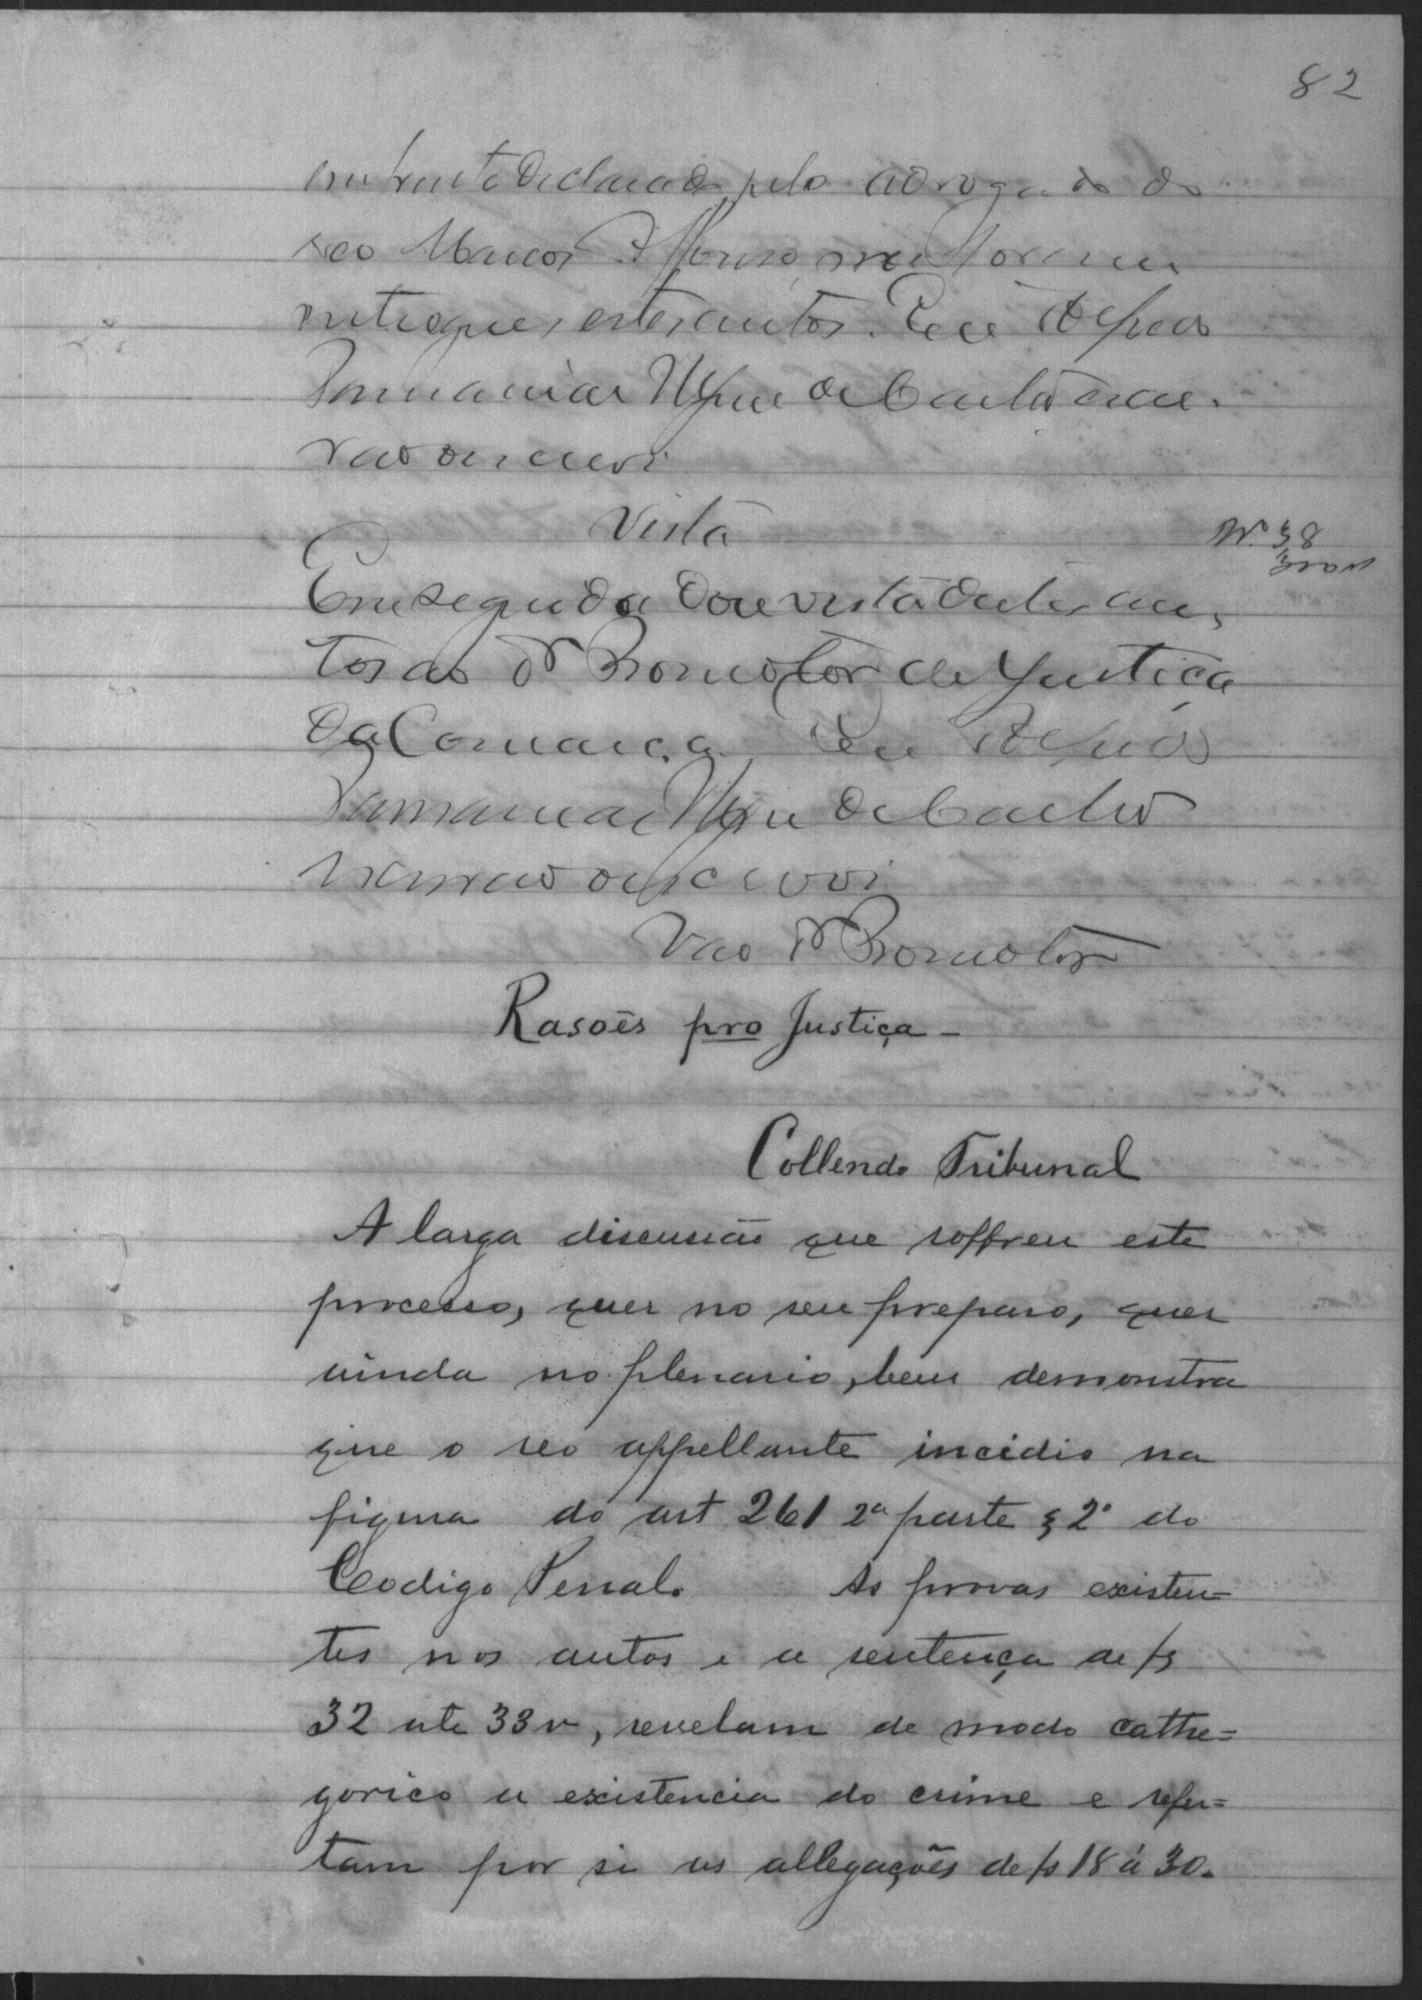 82
declarado pelo advogado do
reo Marcos Affonso me foram
entregues estes autos. Eu
de Castro escri-
vão escrevi
Vista
Nº 38
Em seguida dou vista destes au-
tos ao Dr Promotor de Justiça
da Comarca. Eu
de Castro
escrivão escrevi
Vao Dr Promotor
Rasoẽs pro Justiça -
Collendo Tribunal
A larga discussão que soffreu este
processo, quer no seu preparo, quer
ainda no plenario, bem demonstra
que o reo appellante incidio na
figura do art 261 2ª parte § 2º do
Codigo Penal. As provas existen=
tes nos autos e a sentença de fs
32 ate 33 v, revelam de modo cathe=
gorico a existencia do crime e refu=
tam por si as allegações de fs 18 á 30.